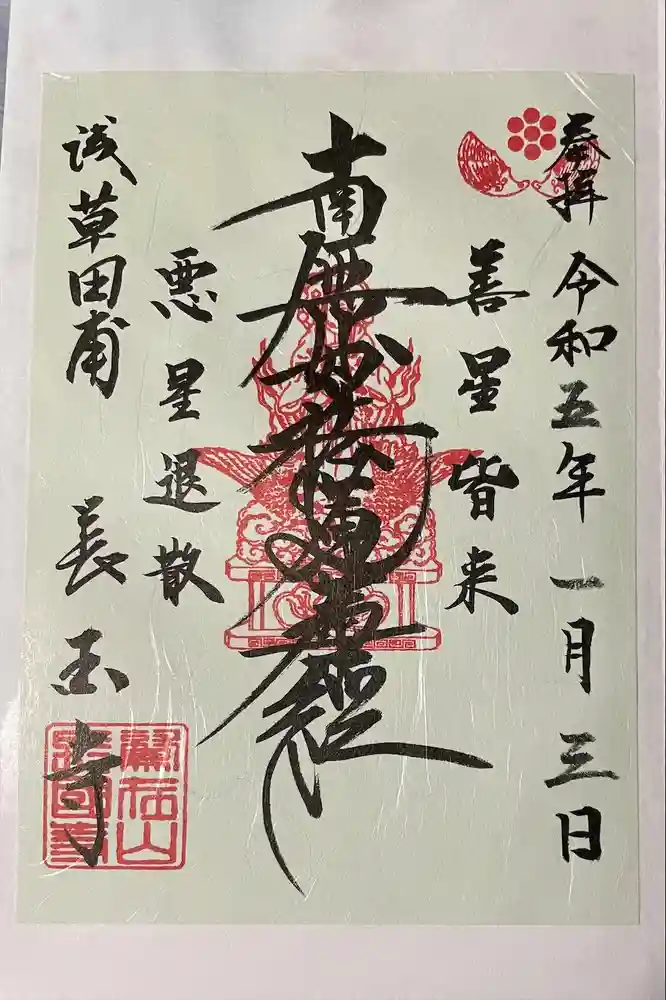 奉拝 令和五年 一月 三日
善星皆来
南無妙法蓮華経
悪星退散
浅草田甫 長国寺
鷲在山
長國寺